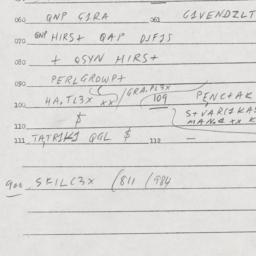 060 QNP G1RA 061 G1VENDZLT
070 QNP HIRS+ QAP DJFJS
080 + QSYN HIRS+
090 PERLGROWP+
100 HA,TL3X XX /GRA,PL3X 109 PENC+AK
$ S+VAR(1KAS
110 MAN,& XX K
111 TATR1K1 QGL $ 112 —
900 SKILC3X (811 /984